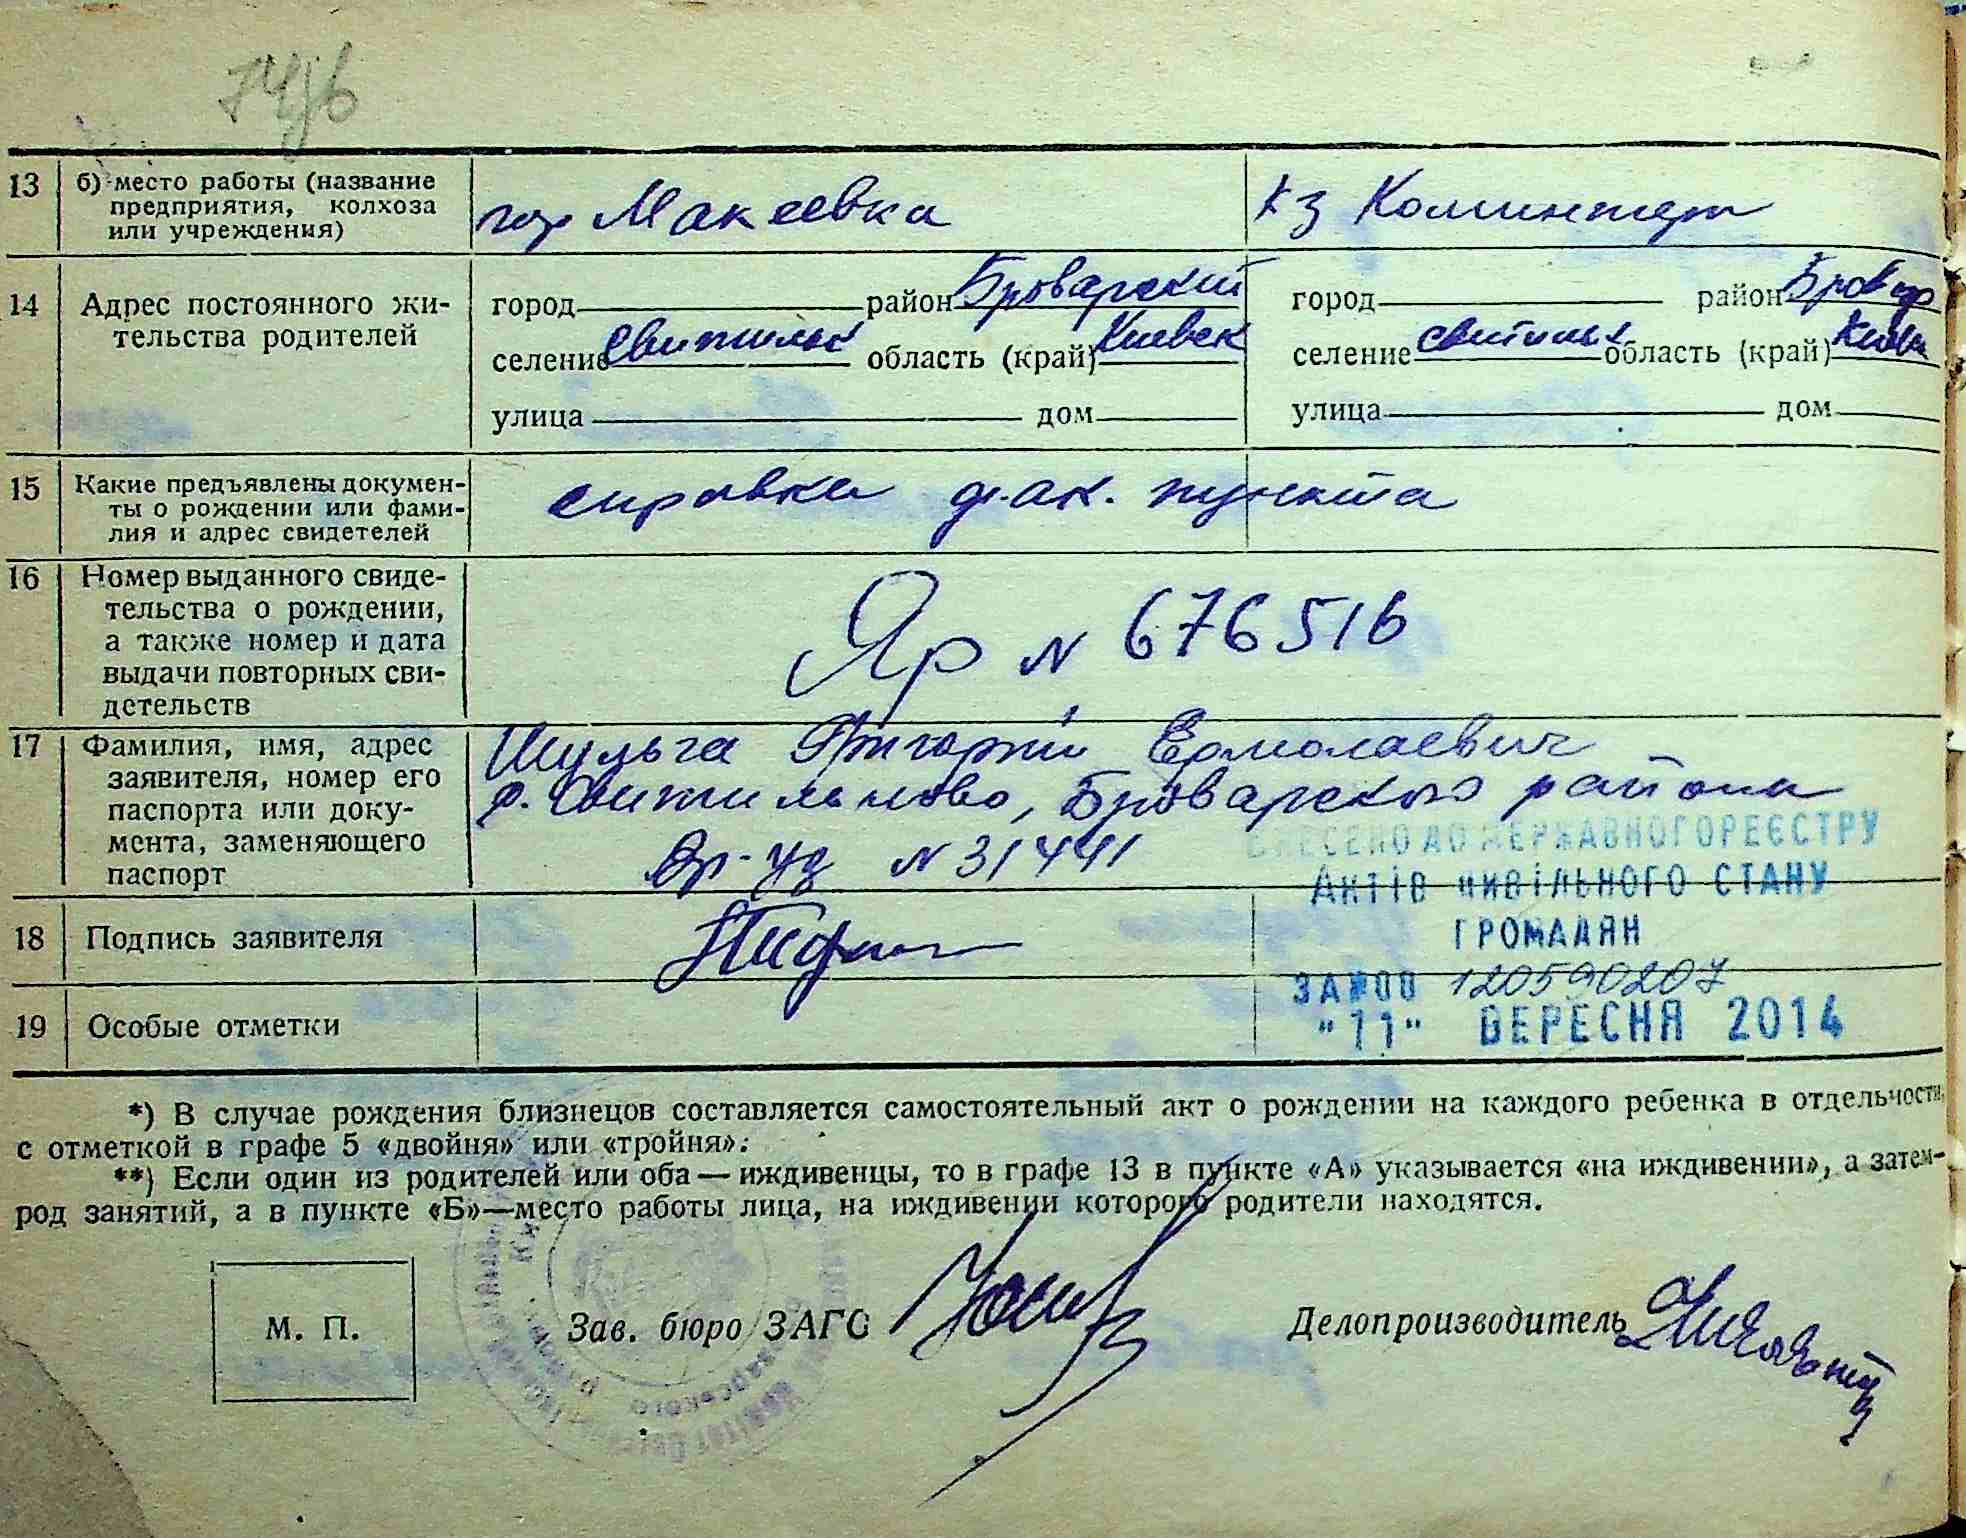 13 б) место работы (название
предприятия, колхоза
или учреждения)
гор Макеевка
кз Коминтерн
14 Адрес постоянного жи-
тельства родителей
город район Броварский
селение Свитильн область (край) Киевск
улица дом
город район Бровар
селение Свитильн область (край) Киев
улица дом
15 Какие предъявлены докумен-
ты о рождении или фами-
лия и адрес свидетелей
справка ф.ак. пункта
16 Номер выданного свиде-
тельства о рождении,
а также номер и дата
выдачи повторных сви-
детельств
Яр N 676516
17 Фамилия, имя, адрес
заявителя, номер его
паспорта или доку-
мента, заменяющего
паспорт
Шульга Григорий Ермолаевич
с. Свитильново, Броварского района
N 31441
ВНЕСЕНО ДО ДЕРЖАВНОГО РЕЄСТРУ
АКТІВ ЦИВІЛЬНОГО СТАНУ
ГРОМАДЯН
ЗА №00 120590207
"11" ВЕРЕСНЯ 2014
18 Подпись заявителя
19 Особые отметки
*) В случае рождения близнецов составляется самостоятельный акт о рождении на каждого ребенка в отдельности,
с отметкой в графе 5 «двойня» или «тройня».
**) Если один из родителей или оба — иждивенцы, то в графе 13 в пункте «А» указывается «на иждивении», а затем—
род занятий, а в пункте «Б»—место работы лица, на иждивении которого родители находятся.
М. П.
Зав. бюро ЗАГС
Делопроизводитель